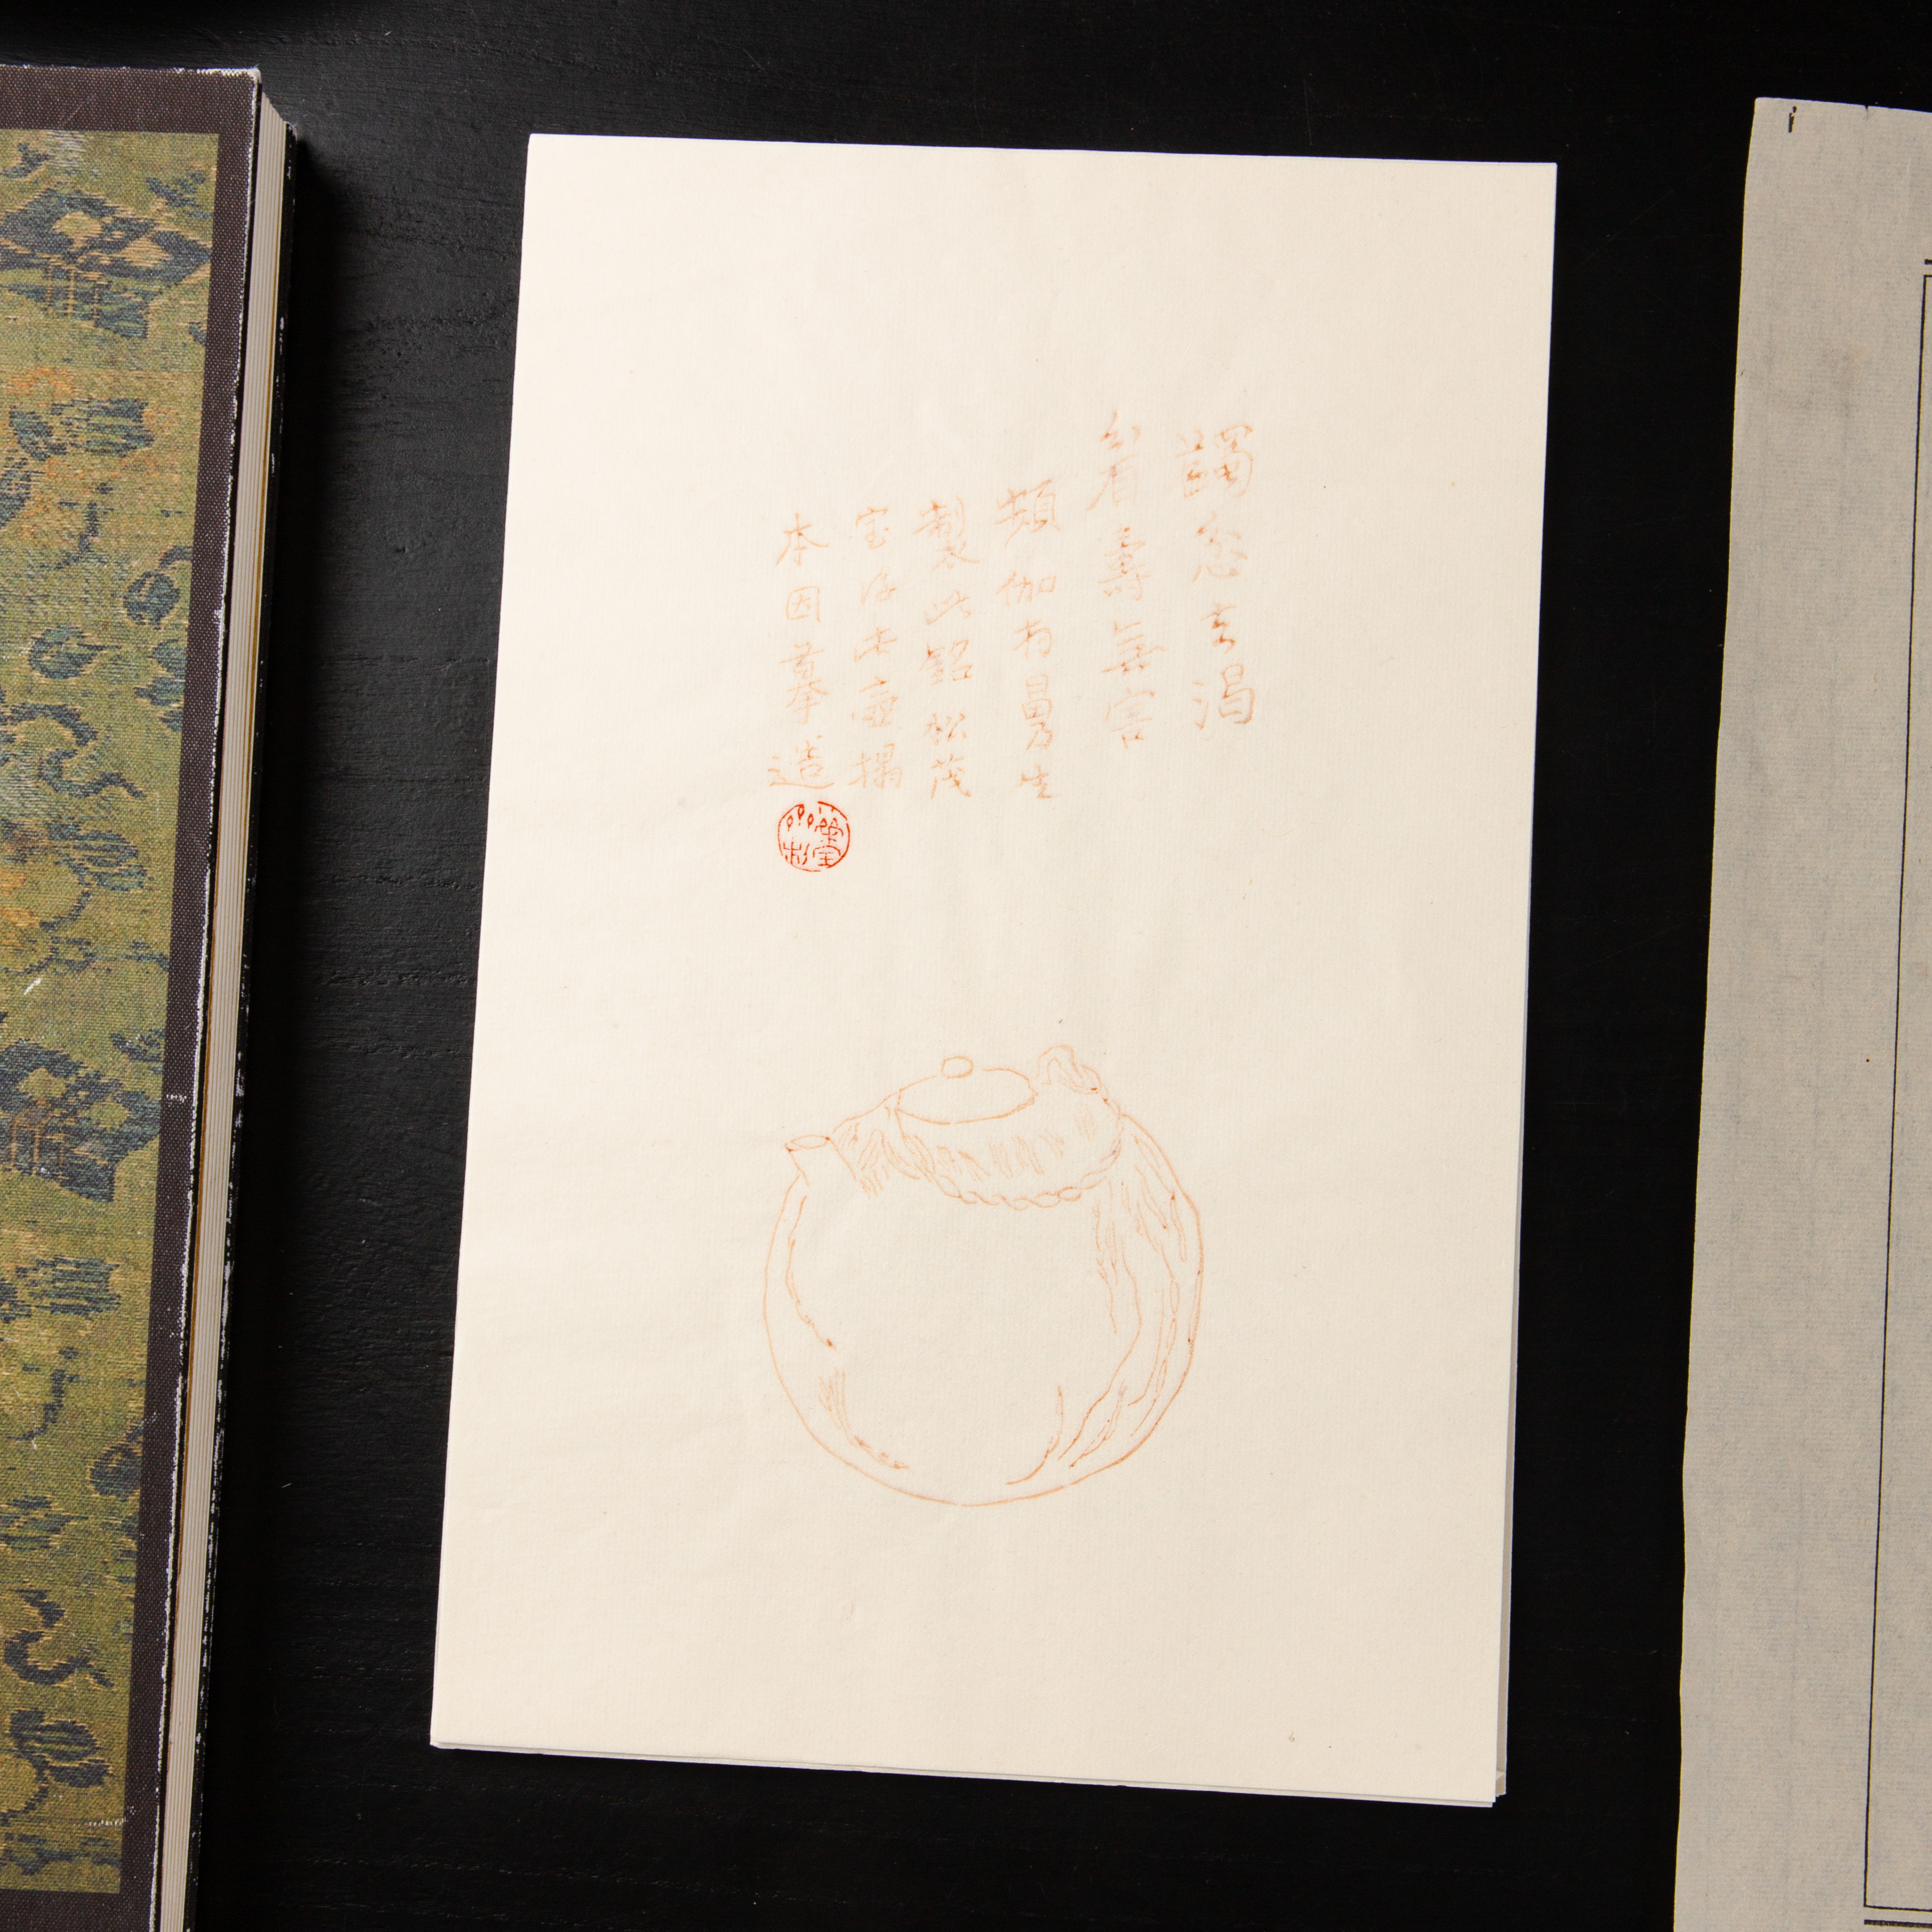 蠲忿去渴
眉壽無害
頻伽為曼生
製此銘松茂
室得此壺搨
本因摹造